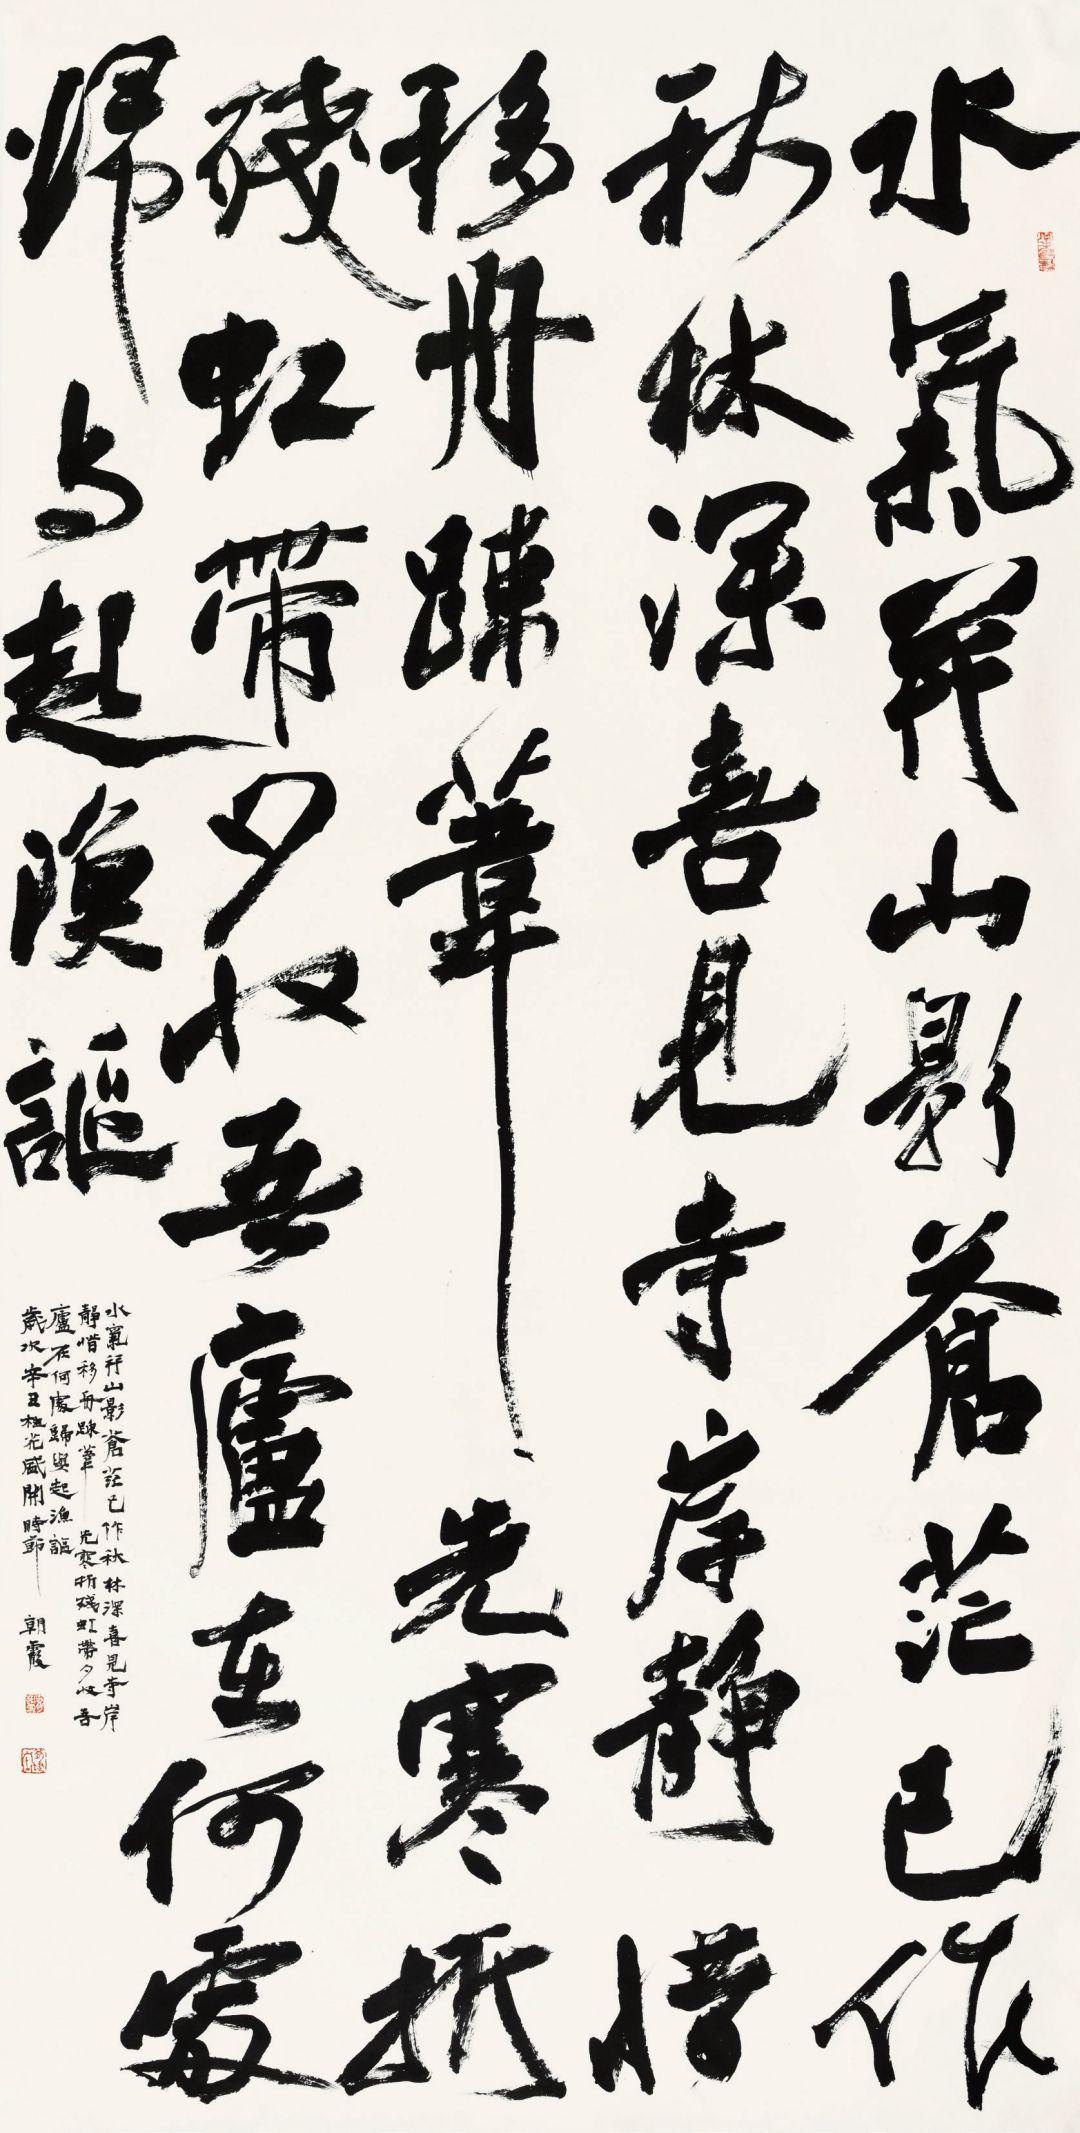 水氣并山影蒼茫已作
秋林深喜見寺岸靜惜
移舟疎葦先寒折
殘虹帶夕收吾廬在何處
歸与起漁謳
水氣并山影蒼茫已作秋林深喜見寺岸
靜惜移舟疎葦先寒折殘虹帶夕收吾
廬在何處歸與起漁謳
歲次辛丑桂花盛開時節 朝霞